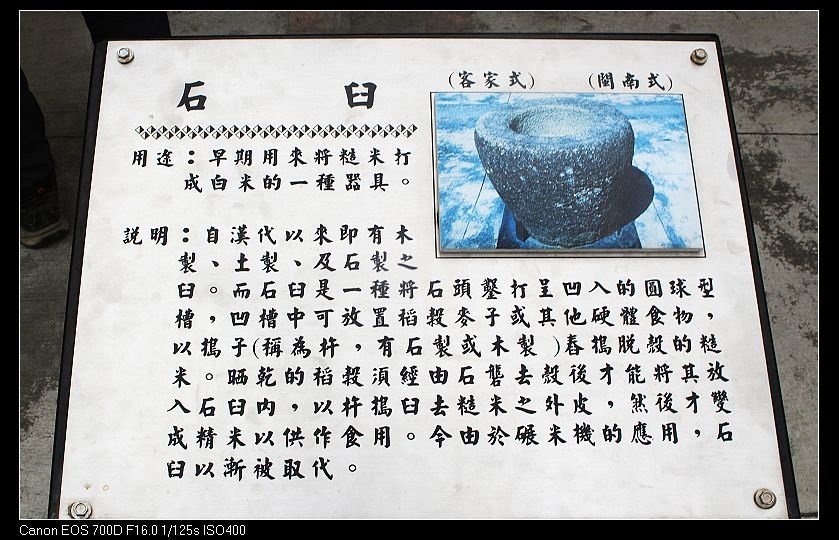 (客家式) (閩南式)
石臼
用途：早期用來將糙米打
成白米的一種器具。
說明：自漢代以來即有木
製、土製、及石製之
臼。而石臼是一種將石頭鑿打呈凹入的圓球型
槽，凹槽中可放置稻穀麥子或其他硬體食物，
以搗子(稱為杵，有石製或木製)舂搗脫殼的糙
米。晒乾的稻穀須經由石礱去殼後才能將其放
入石臼內，以杵搗臼去糙米之外皮，然後才變
成精米以供作食用。今由於碾米機的應用，石
臼以漸被取代。
Canon EOS 700D F16.0 1/125s ISO400